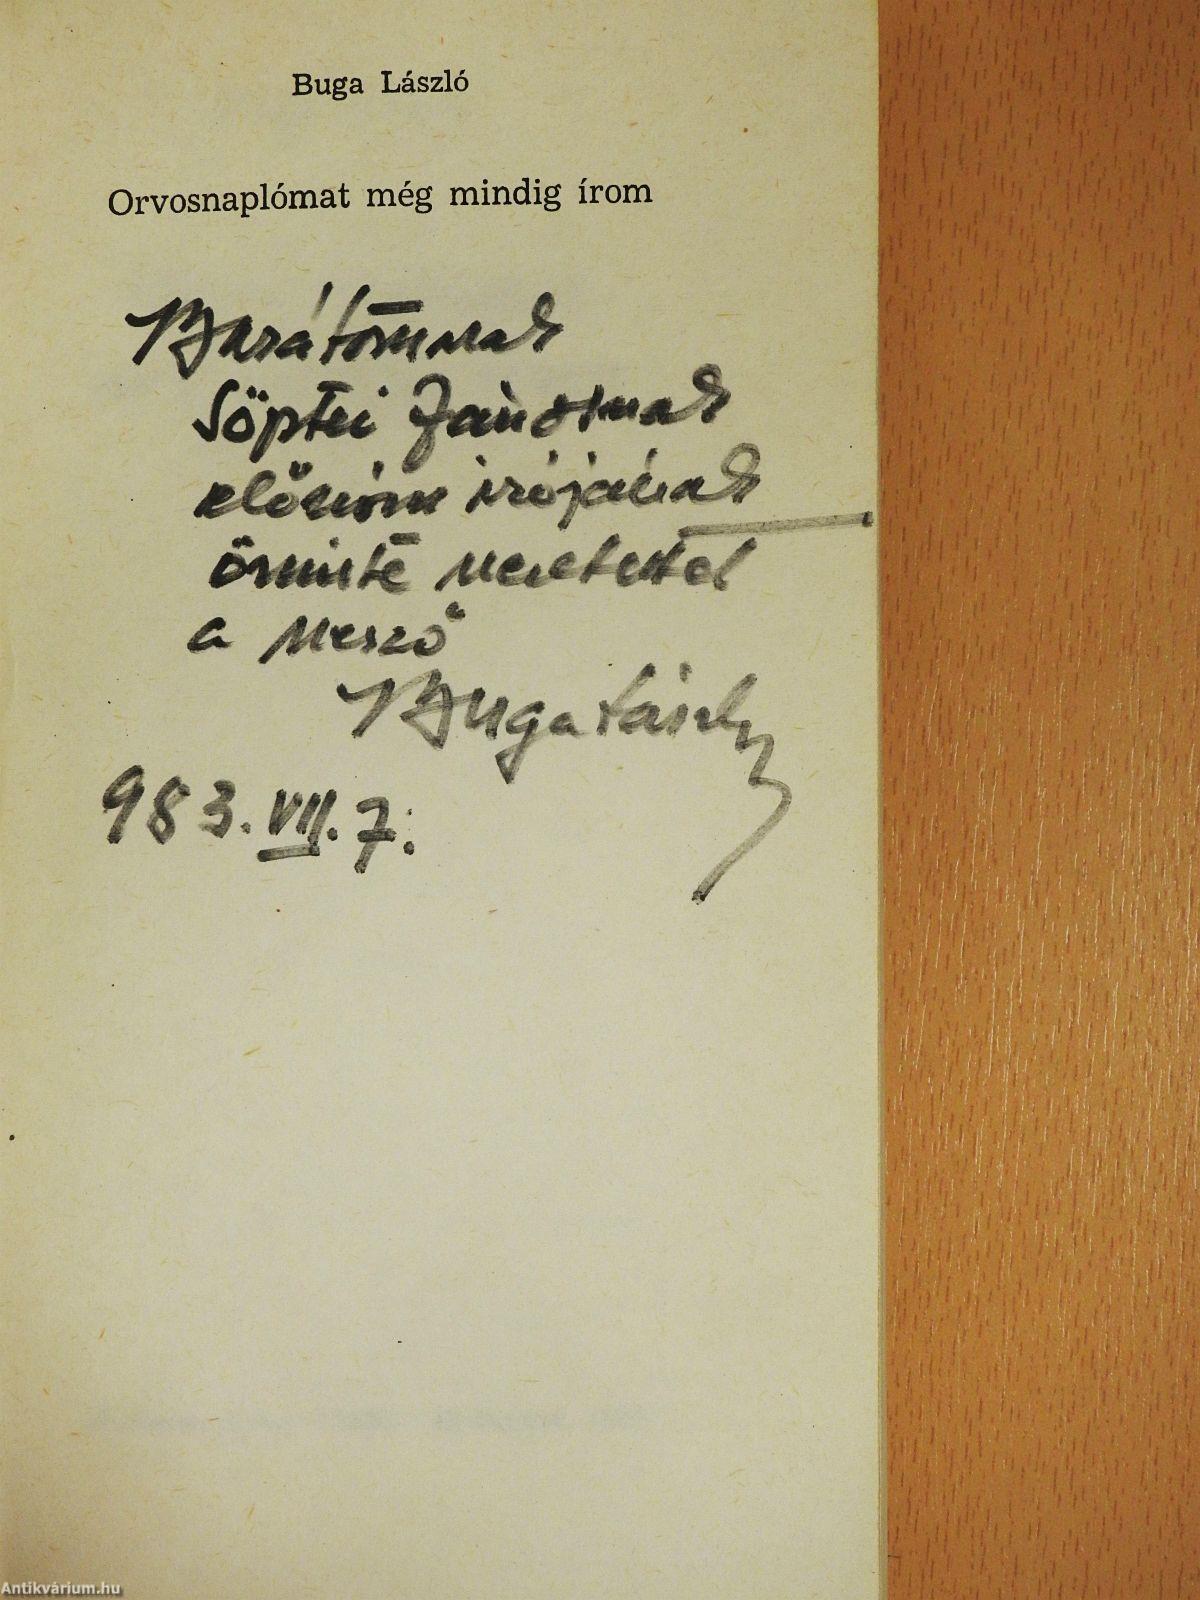 Buga László
Orvosnaplómat még mindig írom
Barátomnak
Söptei Jánosnak
előszóm írójának
őszinte szeretettel
a szerző
Buga László
983. VII. 7.
Antikvárium.hu